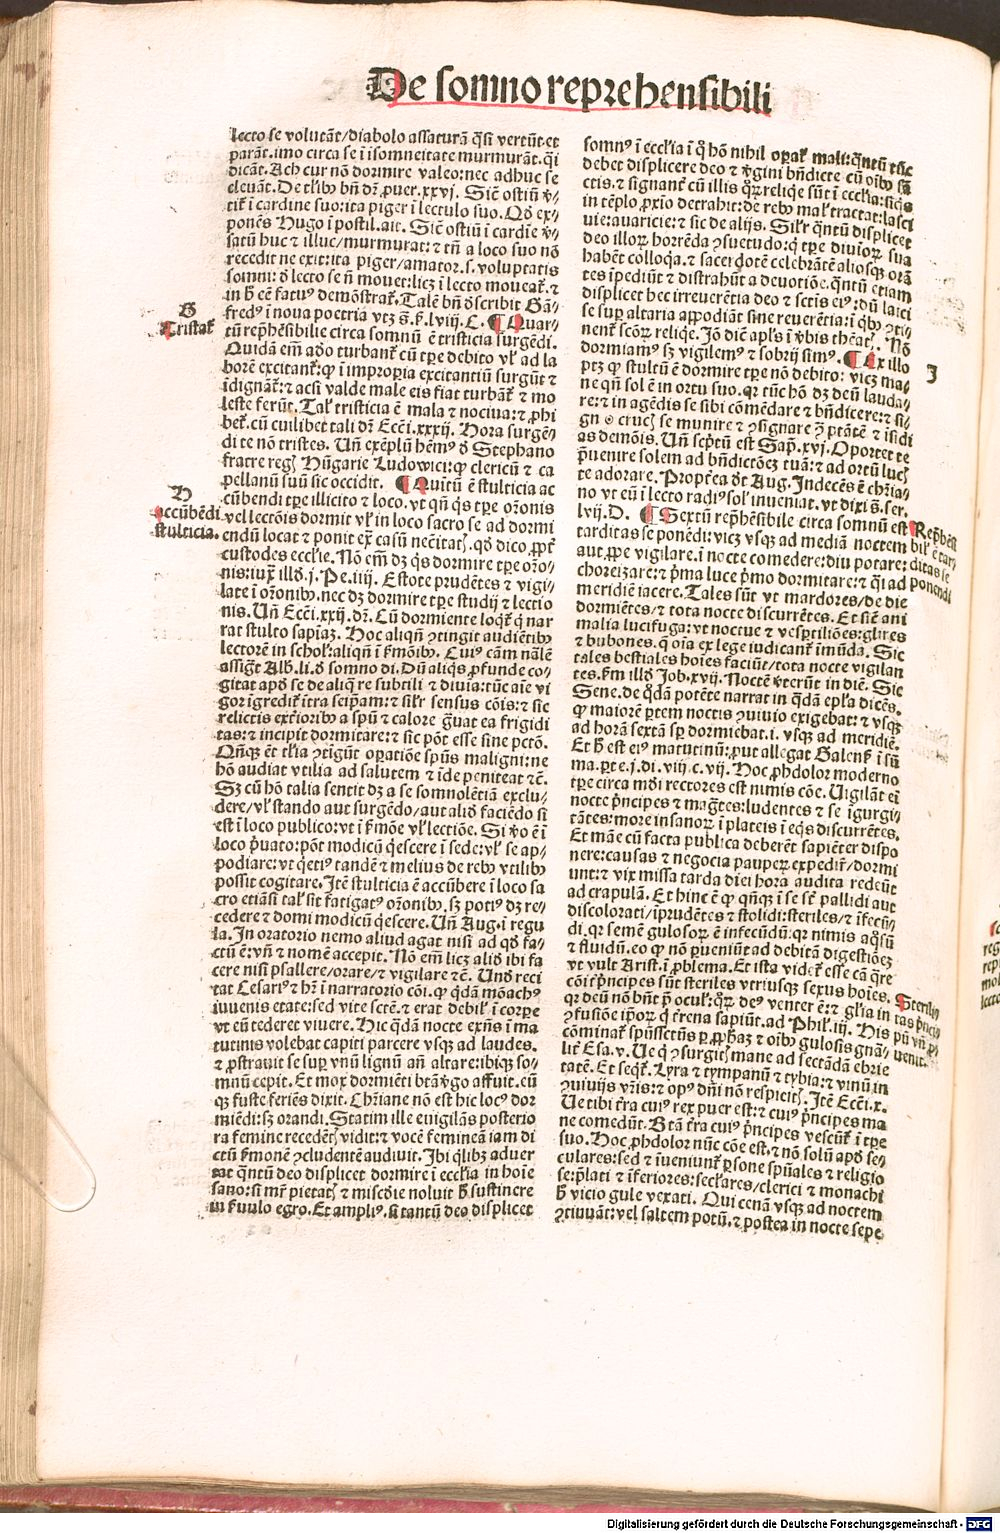 De somno reprehensibili
lecto se volutāt/diabolo assaturā q̄si vertūt et
parāt.imo circa se ī isomneitate murmurāt.q̄i
dicāt.Ach cur nō dormire valeo:nec adhuc se
elevāt.De tlibꝰ bn̄ dr̄ ꝓuer.xxvj. Sic̄ ostiū v̄-
titͬ ī cardine suo:ita piger ī lectulo suo.Qd̄ ex-
ponēs Hugo ī postil.ait. Sic̄ ostiū ī cardīe v̄-
satū huc ⁊ illuc/murmurat:⁊ tn̄ a loco suo nō
recedit ne exit:ita piger/amator.s.voluptatis
somni:d̄ lecto se n̄ mouet:licꝫ ī lecto moueatͬ.⁊
in h̄ eē fatuꝰ demōstratͬ.Talē bn̄ d̄scribit Gā-
fredꝰ ī noua poetria vtꝫ s̄.k̄.lviij.C. ¶ Quar-
tū rep̄hēsibile circa somnū ē tristicia surgēdi.
Quidā em̄ adō turbantͬ cū tꝑe debito vl̓ ad la
borē excitantͬ:ꝙ ī improꝑia excitantiū surgūt ⁊
īdignātͬ:⁊ acsi valde male eis fiat turbātͬ ⁊ mo
leste ferūt.Tal̓ tristicia ē mala ⁊ nociua:⁊ ꝓhi
betͬ.cū cuilibet tali dr̄ Ecci.xxxij. Hora surgē-
di te nō tristes. Un̄ exēplū hēmꝰ d̄ Stephano
fratre regꝭ Hūgarie Ludowici:ꝙ clericū ⁊ ca
pellanū suū sic occidit. ¶ Quītū ē stulticia ac
cūbendi tꝑe illicito ⁊ loco.vt qn̄ q̄s tꝑe or̄onis
vel lectōis dormit vl̓ in loco sacro se ad dormi
endū locat ⁊ ponit ex̄ casū nec̄itatꝭ.qd̄ dico ꝓpt̄
custodes eccl̓ie. Nō em̄ dꝫ q̄s dormire tꝑe or̄o-
nis:iux̄ illd̄.j.Pe.iiij. Estote prudētes ⁊ vigi-
late ī or̄onibꝰ.nec dꝫ dormire tꝑe studij ⁊ lectio
nis. Un̄ Ecci.xxij.dr̄. Cū dormiente loqͬ q̄ nar
rat stulto sapīaꝫ. Hoc aliqn̄ ꝯtingit audiētibꝰ
lectorē in schol̓:aliqn̄ ī k̄mōibꝰ. Cuiꝰ cām nālē
assigt̄ Alb̄.li.d̄ somno di.Dū aliq̄s ꝓfunde co-
gitat apd̄ se de aliq̄ re subtili ⁊ diuia:tūc aīe vi
gor īgreditͬ īt̄ra seip̄am:⁊ sil̓r sensus cōis:⁊ sic
relictis ext̄ioribꝰ a sp̄u ⁊ calore gͣuat ea frigidi
tas:⁊ incipit dormitare:⁊ sic pōt esse sine pctō.
Qn̄qꝫ ēt tl̓ia ꝯtigūt opatiōe sp̄us maligni:ne
hō audiat vtilia ad salutem ⁊ īde peniteat ⁊c̄.
Sꝫ cū hō talia sentit dꝫ a se somnolētiā exclu-
dere/vl̓ stando aut surgēdo/aut aliō faciēdo si
est ī loco publico:vt ī k̄mōe vl̓ lectiōe. Si v̄o ē ī
loco p̄uato:pōt modicū q̄escere ī sede:vl̓ se ap-
podiare:vt q̄etiꝰ tandē ⁊ melius de rebꝰ vtilibꝰ
possit cogitare.Itē stulticia ē accūbere ī loco sa
cro etiāsi tal̓ sit fatigatꝰ or̄onibꝰ.sꝫ potiꝰ dꝫ re-
cedere ⁊ domi modicū q̄escere. Un̄ Aug.ī regu
la.In oratorio nemo aliud agat nisi ad qd̄ fa-
ctū ē:vn̄ ⁊ nomē accepit. Nō em̄ licꝫ aliō ibi fa
cere nisi psallere/orare/⁊ vigilare ⁊c̄. Und̄ reci
tat Cesariꝰ ⁊ hr̄ ī narratorio cōi.ꝙ q̄dā mōachꝰ
iuuenis etate:sed vite sctē.⁊ erat debil̓ ī corꝑe
vt eū tederet viuere. Hic q̄dā nocte exn̄s ī ma
tutinis volebat capiti parcere vsqꝫ ad laudes.
⁊ ꝓstrauit se sup vnū lignū an̄ altare:ibiqꝫ so-
mnū cepit. Et mox dormiēti btā v̄go affuit.eū
qꝫ fuste feriēs dixit. Chr̄iane nō est hic locꝰ dor
miēdi:sꝫ orandi.Statim ille euigilās posterio
ra femine recedētꝭ vidit:⁊ vocē femineā iam di
ctū k̄monē ꝯcludentē audiuit. Ibi q̄libꝫ aduer
tat q̄ntū deo displicet dormire ī eccl̓ia in hoīe
sano:si mr̄ pietatꝭ ⁊ mīscdie noluit h̄ sustinere
in k̄uulo egro.Et ampliꝰ.si tantū deo displicet
G
Tristatͬ
H
Accūbēdi
stulticia.
somnꝰ ī eccl̓ia ī q̄ hō nihil opatͬ mali:q̄ntū tūc
debet displicere deo ⁊ v̄gini bn̄dicte cū oībꝰ sā
ctis.⁊ signantͬ cū illis quoꝝ reliqe sūt ī eccl̓ia:siq̄s
in tēplo ꝓxīo detrahit:de rebꝰ mal̓ tractat:lasci
vie:auaricie:⁊ sic de alijs. Sil̓r q̄ntū displicet
deo illoꝝ horrēda ꝯsuetudo:q̄ tꝑe diuioꝝ sua
habēt colloqa.⁊ sacerdotē celebrātē aliosqꝫ orā
tes īpediūt ⁊ distrahūt a devotiōe.q̄ntū etiam
displicet hec irreuerētia deo ⁊ sctis eiꝰ:dū laici
se sup altaria appodiāt sine reuerētia:ī qbꝰ ꝯti-
nentͬ scōꝝ reliqe.Iō diē apl̓s ī v̄bis theātꝭ. Nō
dormiamꝰ sꝫ vigilemꝰ ⁊ sobrij simꝰ. ¶ Ex illo
ptꝫ ꝙ stultū ē dormire tꝑe nō debito: vicꝫ ma-
ne qn̄ sol ē in ortu suo.qꝛ tūc hō dꝫ deū lauda-
re:⁊ in agēdis se sibi cōmēdare ⁊ bn̄dicere:⁊ si-
gno crucꝭ se munire ⁊ ꝯsignare ꝯ̄ ptātē ⁊ isidi
as demōis. Un̄ sc̄ptū est Sap.xvj.Oportet te
p̄uenire solem ad bn̄dictōeꝫ tuā:⁊ ad ortū lucꝭ
te adorare. Propt̄ea d̄t Aug.Indecēs ē chr̄ia-
no vt eū ī lecto radiꝰ sol̓ inueniat.vt dixi s̄.ser.
lvij.D. ¶ Sextū rep̄hēsibile circa somnū est
tarditas se ponēdi:vicꝫ vsqꝫ ad mediā noctem
aut ꝓpe vigilare.ī nocte comedere:diu potare:
choreizare:⁊ p̄ma luce p̄mo dormitare:⁊ q̄i ad
meridiē iacere.Tales sūt vt mardores/de die
dormiētes/⁊ tota nocte discurrētes. Et sic̄ ani
malia lucifuga:vt noctue ⁊ vesꝑtiliōes:glires
⁊ bubones.q̄ oīa ex lege iudicantͬ īmūda. Sic
tales bestiales hoīes faciūt/tota nocte vigilan
tes.k̄m illd̄ Job.xvij.Noctē v̄terūt in diē. Sic
Sene.de q̄dā potēte narrat in q̄dā epl̓a dicēs.
ꝙ maiorē ꝑtem noctis ꝯuiuio exigebat:⁊ vsqꝫ
ad horā sextā sp dormiebat.i. vsqꝫ ad meridiē.
Et h̄ est eiꝰ matutinū:ꝓut allegat Galenꝰ ī sū
ma.ꝑte.j.di.viij.c.vij. Hoc ꝓhdolor moderno
tꝑe circa mōi rectores est nimis cōe. Uigilāt ei
nocte p̄ncipes ⁊ magtēs:ludentes ⁊ se īgurgi-
tātes:more insanoꝝ ī plateis ī eqs discurrētes.
Et māe cū facta publica deberēt sapiēter dispo
nere:causas ⁊ negocia paupeꝝ expedirͬ/dormi
unt:⁊ vix missa tarda diei hora audita redeūt
ad crapulā. Et hinc ē ꝙ qn̄qꝫ ī se st̄ pallidi aut
discolorati/īprudētes ⁊ stolidi:steriles/⁊ īfecū-
di.qꝛ semē gulosoꝝ ē infecūdū:qꝛ nimis aqosū
⁊ fluidū.eo ꝙ nō ꝑueniūt ad debitā digestiōeꝫ
vt vult Arist.ī ꝓblema.Et ista videtͬ esse cā q̄re
cōiͬ p̄ncipes sūt steriles vtriusqꝫ sexus hoīes.
qꝛ deū nō hn̄t p̄ ocul̓:quoꝝ deꝰ venter ē:⁊ gl̓ia in
ꝯfusiōe ip̄oꝝ q̄ t̄rena sapiūt.ad Phil̓.iij. His
cōminatͬ spūssctūs ꝑ ꝓphaꝫ ⁊ oībꝰ gulosis gnā-
litͬ Esa.v. Ue q̄ ꝯsurgitꝭ mane ad sectādā ebrie
tatē. Et seqtͬ.Lyra ⁊ tympanū ⁊ tybia:⁊ vinū in
ꝯuiuijs vr̄is:⁊ opꝰ dn̄i nō respicitꝭ. Itē Ecci.x.
Ue tibi t̄ra cuiꝰ rex puer est:⁊ cuiꝰ p̄ncipes ma
ne comedūt. Btā t̄ra cuiꝰ p̄ncipes vescūtͬ ī tꝑe
suo. Hoc ꝓhdolor nūc cōe est.⁊ nō solū apd̄ se-
culares:sed ⁊ īueniuntͬ ꝑsone spūales ⁊ religio
se:p̄lati ⁊ īferiores:secl̓ares/clerici ⁊ monachi
h̄ vicio gule vexati. Qui cenā vsqꝫ ad noctem
ꝯtiuāt:vel saltem potū.⁊ postea in nocte sepe
I
Rep̄hēsi
bil̓ ē tar-
ditas se
ponendi
Sterili-
tas p̄ncipū
vn̄ ꝓ-
uenit.
Digitalisierung gefördert durch die Deutsche Forschungsgemeinschaft - DFG